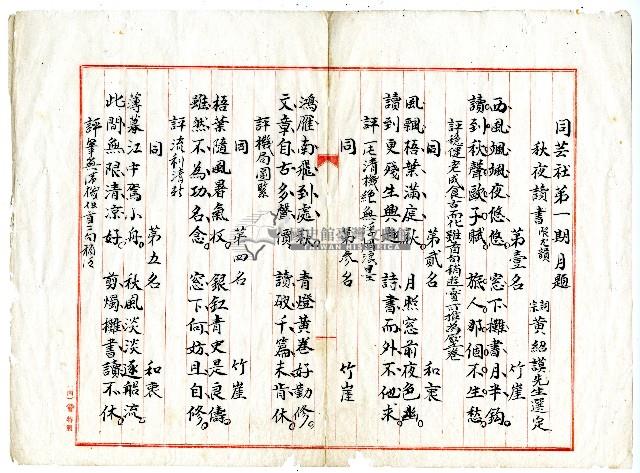 同芸社第一期月題
秋夜讀書 限尤韻
宗詞 黃紹謨先生選定
第壹名 竹崖
西風颯颯夜悠悠。窓下攤書月半鈎。
讀到秋聲歐子賦。旅人那個不生愁。
評 穩健老成食古而化
同 第貳名 和衷
風飄梧葉滿庭秋。月照窓前夜色幽。
讀到更殘生興趣。詩書而外不他求。
評 一片清機絕無
同 第參名 竹崖
鴻雁南飛到處秋。青燈黃卷好勤修。
文章自古多聲價。讀破千篇未肯休。
評 機局圓緊
同 第四名 竹崖
梧葉隨風暑氣收。銀釭青史是良儔。
雖然不為功名念。窓下何妨且自修。
評 流利清新
同 第五名 和衷
薄暮江中駕小舟。秋風淡淡逐船流。
此間無限清涼好。剪燭攤書讀不休。
評 筆無